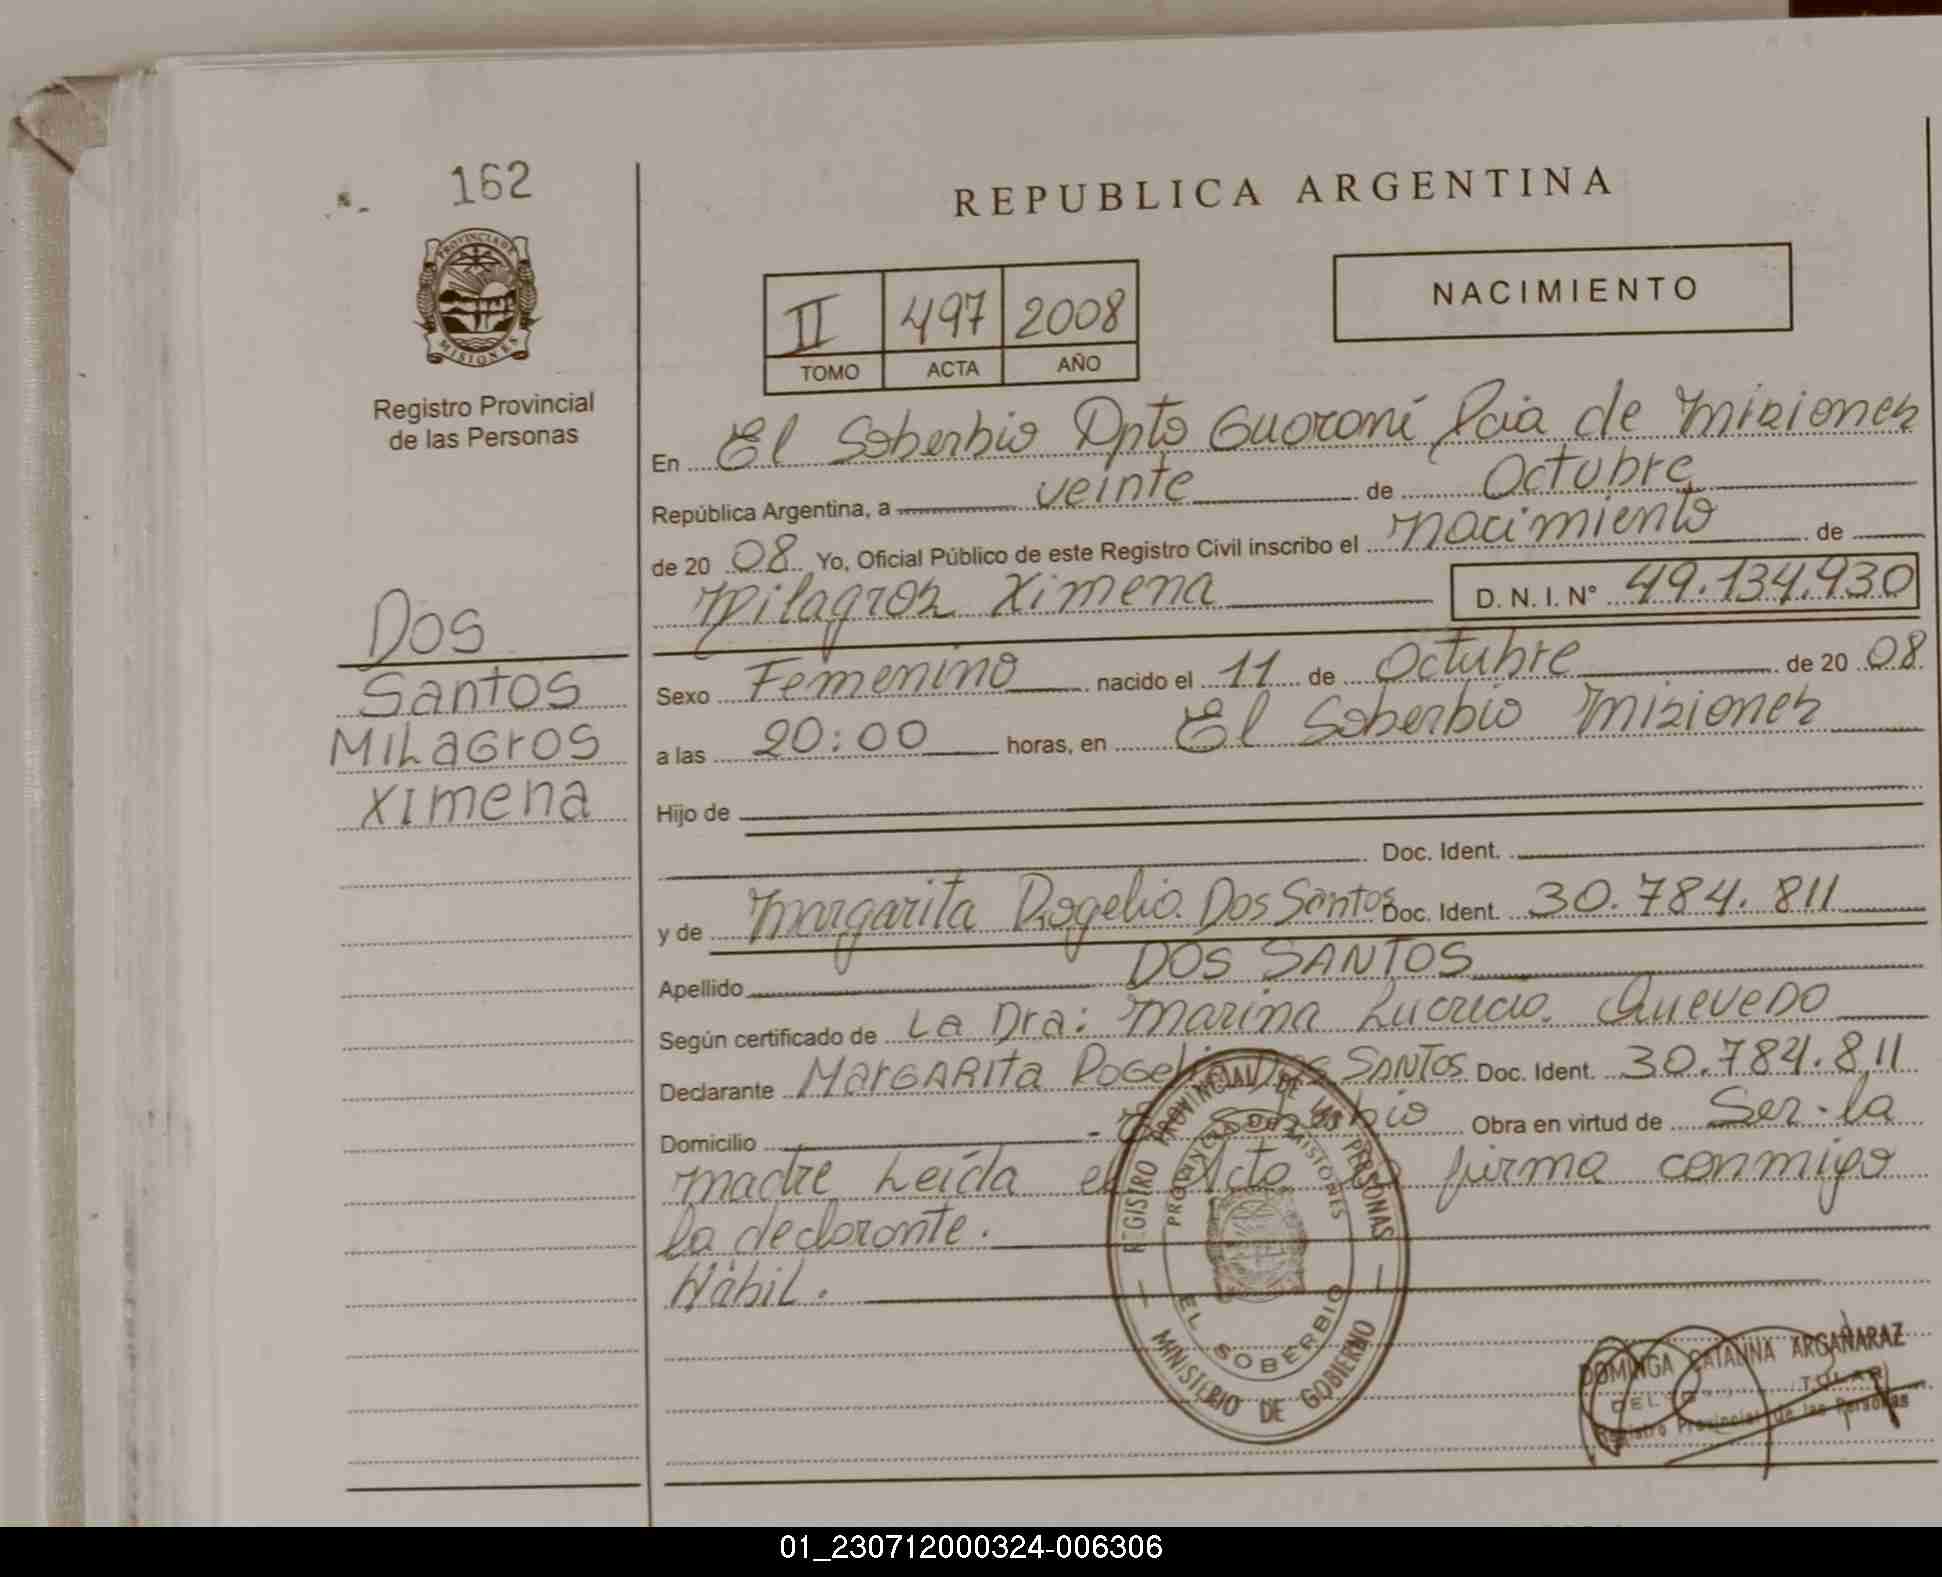 162
PROVINCIA DE
MISIONES
Registro Provincial
de las Personas
Dos
Santos
Milagros
Ximena
REPUBLICA ARGENTINA
II 497 2008
TOMO ACTA AÑO
NACIMIENTO
En El Soberbio Dpto Guaraní Pcia de Misiones
República Argentina, a veinte de Octubre
de 2008 Yo, Oficial Público de este Registro Civil inscribo el nacimiento de
Milagros Ximena D. N. I. N° 49.134.930
Sexo Femenino nacido el 11 de Octubre de 2008
a las 20:00 horas, en El Soberbio Misiones
Hijo de
Doc. Ident.
y de Margarita Rogelia Dos Santos Doc. Ident. 30.784.811
Apellido DOS SANTOS
Según certificado de La Dra: Marina Lucrecia Quevedo
Declarante Margarita Rogelia Dos Santos Doc. Ident. 30.784.811
Domicilio - El Soberbio Obra en virtud de Ser la
madre Leída el Acta la firma conmigo
la declarante.
Hábil.
REGISTRO PROVINCIAL DE LAS PERSONAS
PROVINCIA DE MISIONES
EL SOBERBIO
MINISTERIO DE GOBIERNO
DOMINGA CATALINA ARGAÑARAZ
Registro Provincial de las Personas
01_230712000324-006306